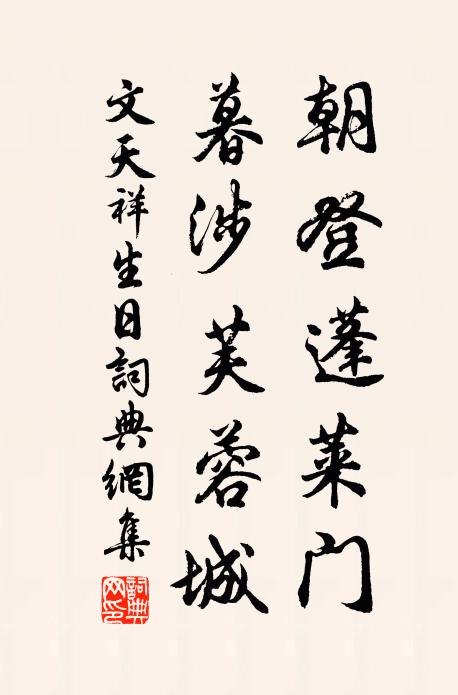 朝登蓬萊门
暮涉芙蓉城
文天祥生日詞典網集
詞典网印